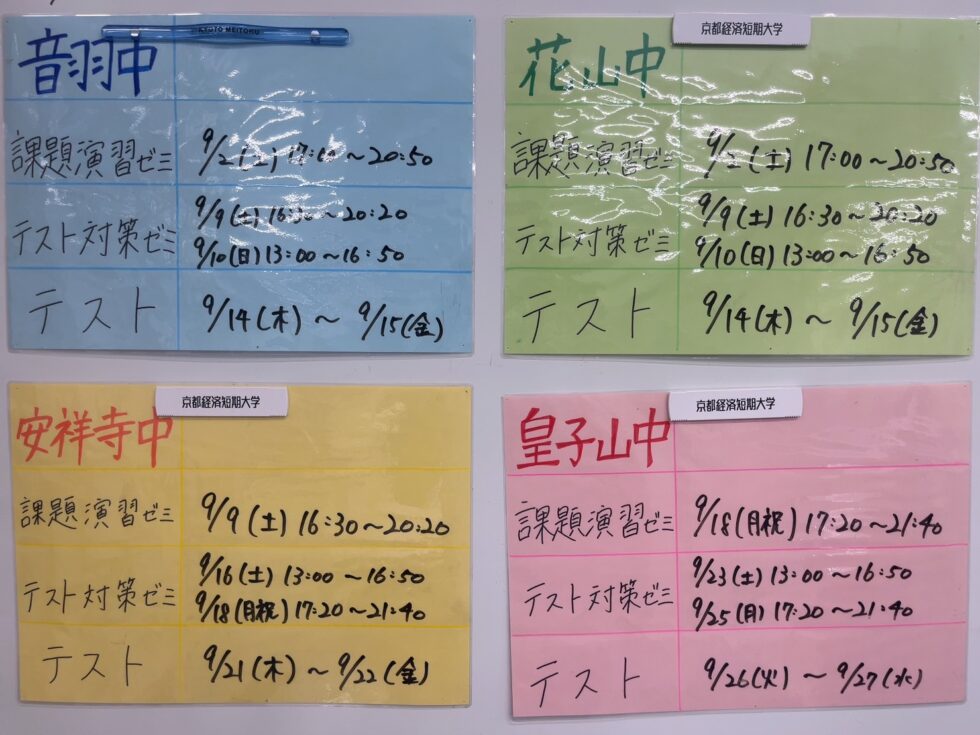 KYOTO MEITOKU
音羽中
課題演習ゼミ 9/2(土) 17:00～20:50
テスト対策ゼミ 9/9(土) 16:30～20:20
9/10(日) 13:00～16:50
テスト 9/14(木)～9/15(金)
京都経済短期大学
花山中
課題演習ゼミ 9/2(土) 17:00～20:50
テスト対策ゼミ 9/9(土) 16:30～20:20
9/10(日) 13:00～16:50
テスト 9/14(木)～9/15(金)
京都経済短期大学
安祥寺中
課題演習ゼミ 9/9(土) 16:30～20:20
テスト対策ゼミ 9/16(土) 13:00～16:50
9/18(月祝) 17:20～21:40
テスト 9/21(木)～9/22(金)
京都経済短期大学
皇子山中
課題演習ゼミ 9/18(月祝) 17:20～21:40
テスト対策ゼミ 9/23(土) 13:00～16:50
9/25(月) 17:20～21:40
テスト 9/26(火)～9/27(水)